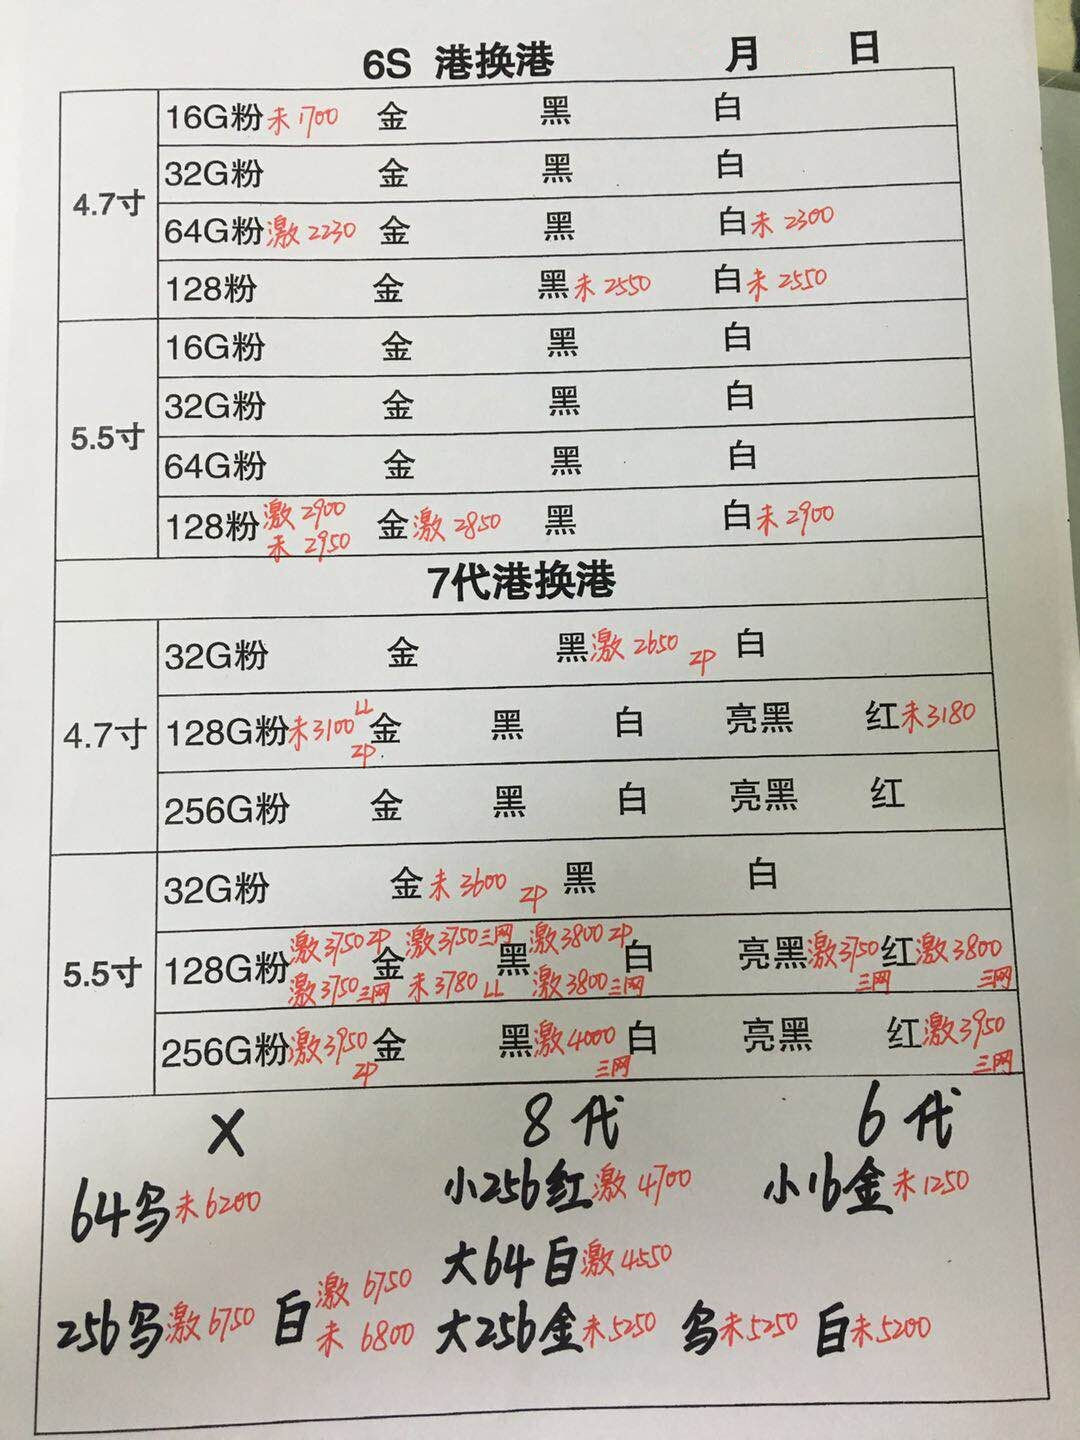 6S 港换港 月 日
4.7寸
16G粉 未1700 金 黑 白
32G粉 金 黑 白
64G粉 激2230 金 黑 白 未2300
128粉 金 黑 未2550 白 未2550
5.5寸
16G粉 金 黑 白
32G粉 金 黑 白
64G粉 金 黑 白
128粉 激2900 未2950 金 激2850 黑 白 未2900
7代港换港
4.7寸
32G粉 金 黑 激2650 ZP 白
128G粉 未3100 LL ZP 金 黑 白 亮黑 红 未3180
256G粉 金 黑 白 亮黑 红
5.5寸
32G粉 金 未3600 ZP 黑 白
128G粉 激3750 ZP 激3750三网 金 激3750三网 未3780 LL 黑 激3800 ZP 激3800三网 白 亮黑 激3750三网 红 激3800三网
256G粉 激3950 ZP 金 黑 激4000三网 白 亮黑 红 激3950三网
X 8代 6代
64乌 未6200 小256红 激4700 小16金 未1250
大64白 激4550
256乌 激6750 白 激6750 未6800 大256金 未5250 乌 未5250 白 未5200